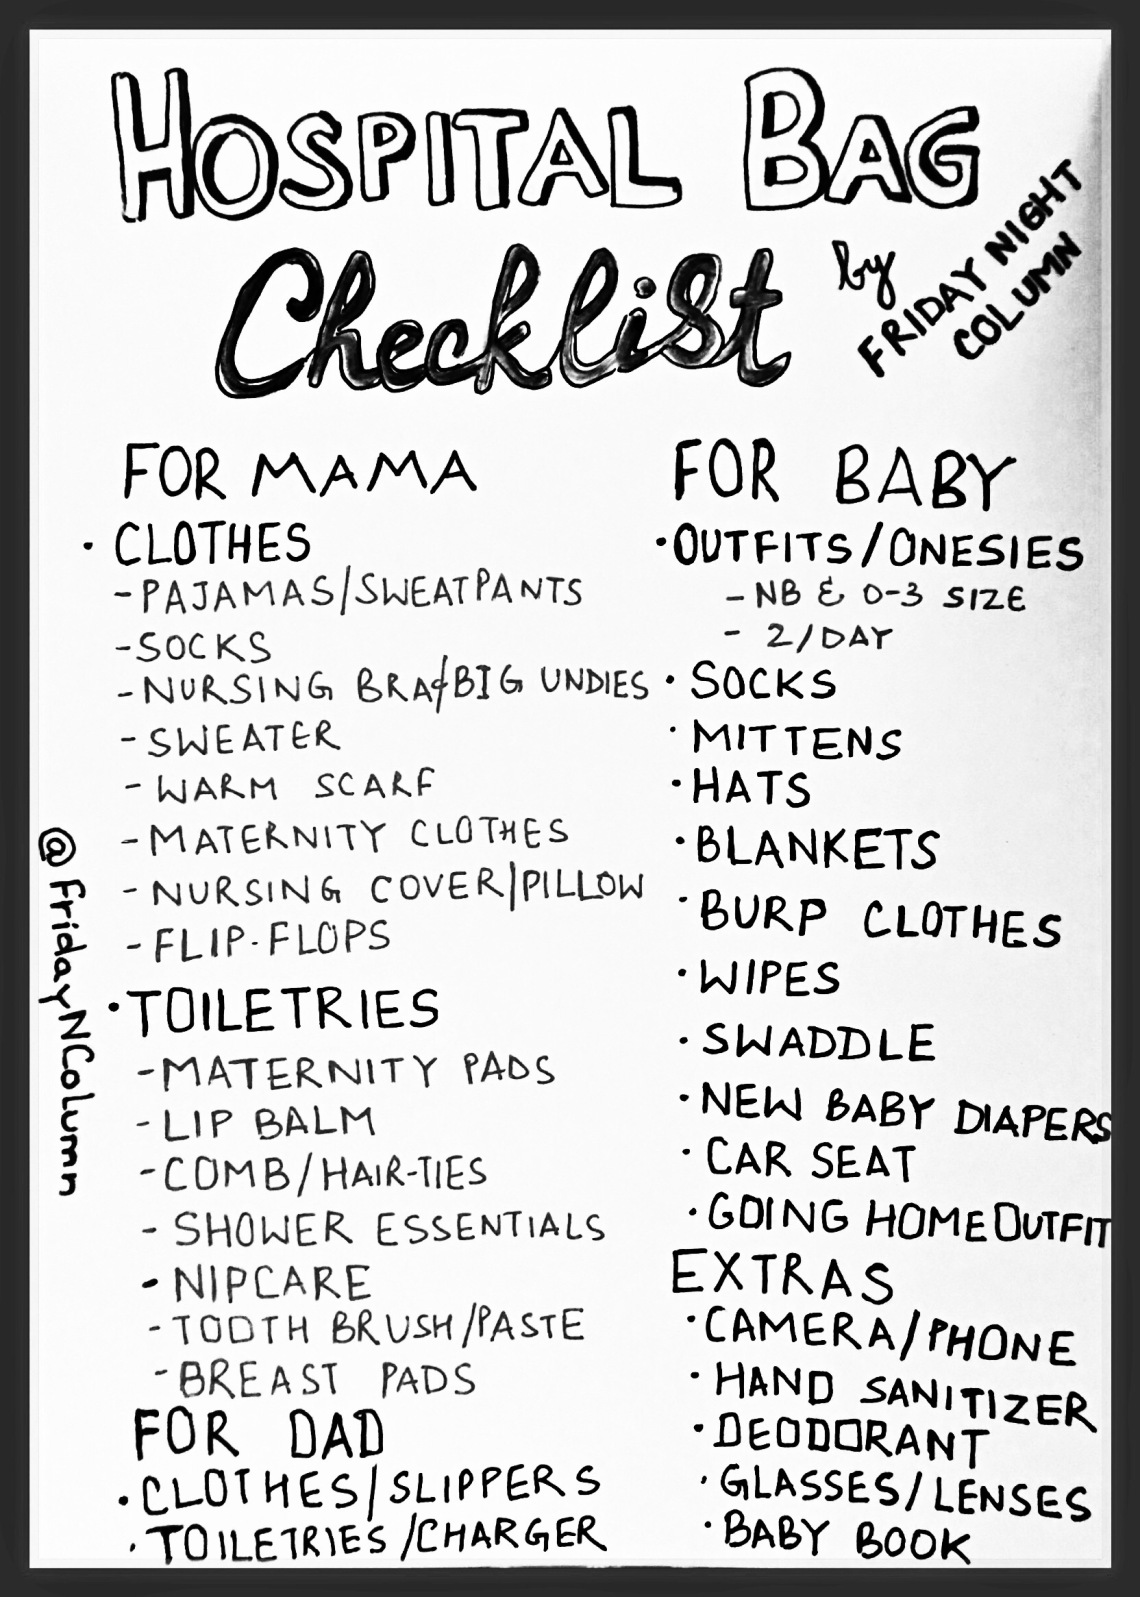 HOSPITAL BAG
Checklist
by
FRIDAY NIGHT
COLUMN
FOR MAMA
· CLOTHES
- PAJAMAS/SWEATPANTS
- SOCKS
- NURSING BRA & BIG UNDIES
- SWEATER
- WARM SCARF
- MATERNITY CLOTHES
- NURSING COVER/PILLOW
- FLIP-FLOPS
· TOILETRIES
- MATERNITY PADS
- LIP BALM
- COMB/HAIR-TIES
- SHOWER ESSENTIALS
- NIPCARE
- TOOTH BRUSH/PASTE
- BREAST PADS
FOR DAD
· CLOTHES/SLIPPERS
· TOILETRIES/CHARGER
FOR BABY
· OUTFITS/ONESIES
- NB & 0-3 SIZE
- 2/DAY
· SOCKS
· MITTENS
· HATS
· BLANKETS
· BURP CLOTHES
· WIPES
· SWADDLE
· NEW BABY DIAPERS
· CAR SEAT
· GOING HOME OUTFIT
EXTRAS
· CAMERA/PHONE
· HAND SANITIZER
· DEODORANT
· GLASSES/LENSES
· BABY BOOK
@FridayNColumn